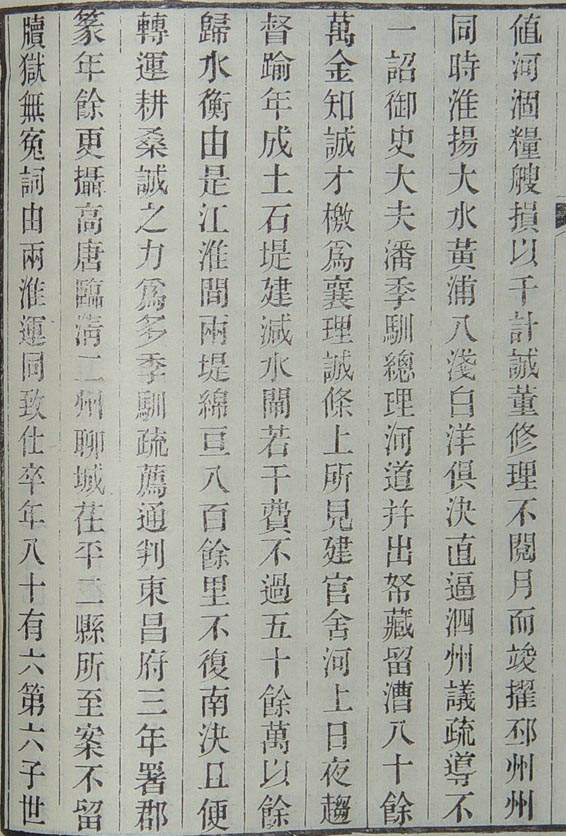 值河涸糧艘損以千計誠董修理不閱月而竣擢邳州州
同時淮揚大水黃浦八淺白洋俱決直逼泗州議疏導不
一詔御史大夫潘季馴總理河道并出帑藏留漕八十餘
萬金知誠才檄爲襄理誠條上所見建官舍河上日夜趨
督踰年成土石堤建減水閘若干費不過五十餘萬以餘
歸水衡由是江淮間兩堤綿亘八百餘里不復南決且便
轉運耕桑誠之力爲多季馴疏薦通判東昌府三年署郡
篆年餘更攝高唐臨淸二州聊城茌平二縣所至案不留
牘獄無寃詞由兩淮運同致仕卒年八十有六第六子世